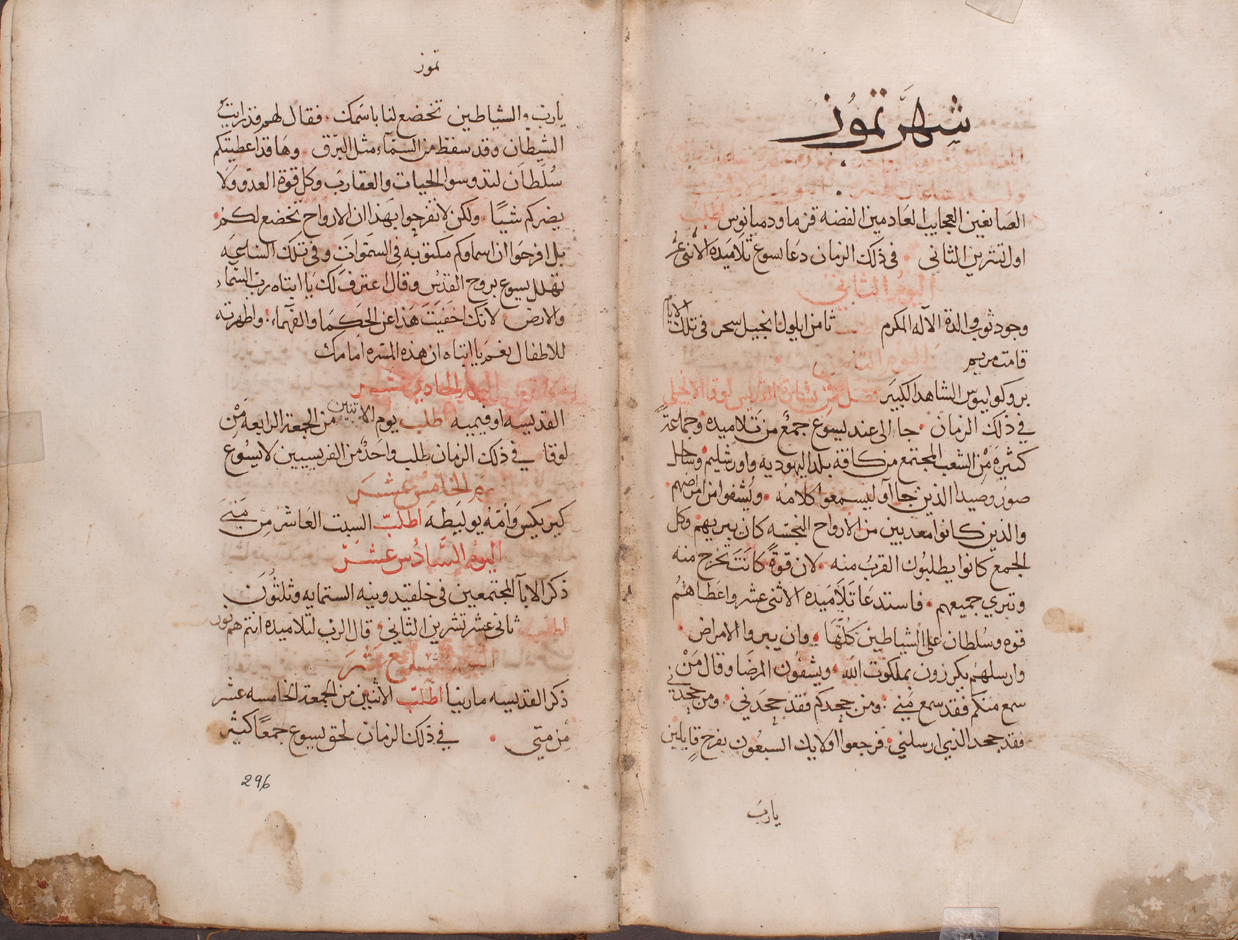 شهر تموز
الصانعين العجايب العادمين الفضه قزما ودميانوس اطلب
اول تشرين الثاني في ذلك الزمان دعا يسوع تلاميذه الاثنى عشر
اليوم الثاني
وجود ثوب والدة الاله المكرم ثامن ايلول انجيل سحر في تلك الايام
قامت مريم
اليوم الثامن
بروكوبيوس الشاهد الكبير فصل من بشارة القديس لوقا الانجيلي
في ذلك الزمان جا الى عند ليسوع جمع من تلاميذه وجماعة
كثيرة من الشعب المجتمع من كافة بلد اليهوديه واورشليم وساحل
صور وصيدا الذين جاآو ليسمعوا كلامه ويشفوا من امراضهم
والذين كانوا معدبين من الارواح النجسه كان يبريهم وكل
الجمع كانوا يطلبون القرب منه لان قوة كانت تخرج منه
وتبري جميعهم فاستدعا تلاميذه الاثنى عشر واعطاهم
قوه وسلطان على الشياطين كلها وان يبروا الامراض
وارسلهم يكرزون بملكوت الله ويشفون المرضا وقال من
سمع منكم فقد سمع مني ومن جحدكم فقد جحدني ومن جحدني
فقد جحد الذي ارسلني فرجعوا اولايك السبعون بفرح قايلين
يارب
تموز
يارب والشياطين تخضع لنا باسمك فقال لهم قد رايت
الشيطان وقد سقط من السماء مثل البرق وها قد اعطيتكم
سلطان لتدوسوا الحيات والعقارب وكل قوة العدو ولا
يضركم شيا ولكن لا تفرحوا بهذا ان الارواح تخضع لكم
بل افرحوا ان اسماوكم مكتوبه في السموات وفي تلك الساعه
تهلل يسوع بروح القدس وقال اعترف لك يا ابتاه رب السماء
والارض لانك اخفيت هذا عن الحكما والفهماء واظهرته
للاطفال نعم يا ابتاه ان هذه المسره امامك
اليوم الحادي عشر
القديسه اوفيميه طلب يوم الاتنين من الجمعة الرابعه من
لوقا في ذلك الزمان طلب واحد من الفريسيين لايسوع
يوم الخامس عشر
كيريكس وامه يوليطه اطلب السبت العاشر من متي
اليوم السادس عشر
ذكر الابآ المجتمعين في خلقيدونيه الستمايه وثلثون
اطلب ثاني عشر تشرين الثاني قال الرب لتلاميذه انتم هم نور
اليوم السابع عشر
ذكر القديسه مارينا اطلب الاثنين من الجمعة الخامسه عشر
من متي في ذلك الزمان لحق يسوع جمعا كثير
296